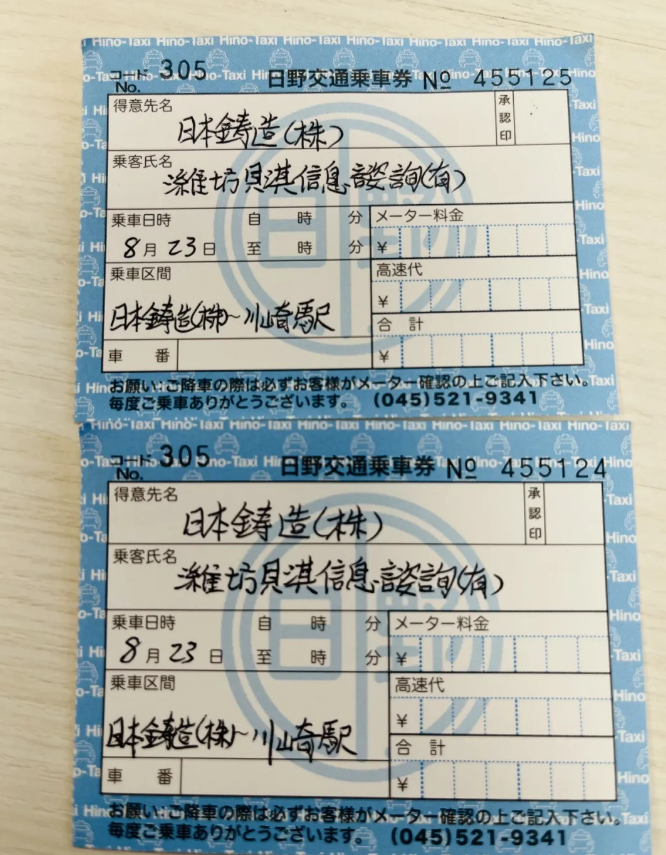 コード No. 305 日野交通乗車券 No 455125
得意先名 承認印
日本鋳造(株)
乗客氏名
潍坊貝淇信息諮詢(有)
乗車日時 自 時 分 メーター料金
8月23日 至 時 分 ¥
乗車区間 高速代
¥
日本鋳造(株)～川崎駅
合計
車番 ¥
お願い:ご降車の際は必ずお客様がメーター確認の上ご記入下さい。
毎度ご乗車ありがとうございます。 (045)521-9341
コード No. 305 日野交通乗車券 No 455124
得意先名 承認印
日本鋳造(株)
乗客氏名
潍坊貝淇信息諮詢(有)
乗車日時 自 時 分 メーター料金
8月23日 至 時 分 ¥
乗車区間 高速代
¥
日本鋳造(株)～川崎駅
合計
車番 ¥
お願い:ご降車の際は必ずお客様がメーター確認の上ご記入下さい。
毎度ご乗車ありがとうございます。 (045)521-9341